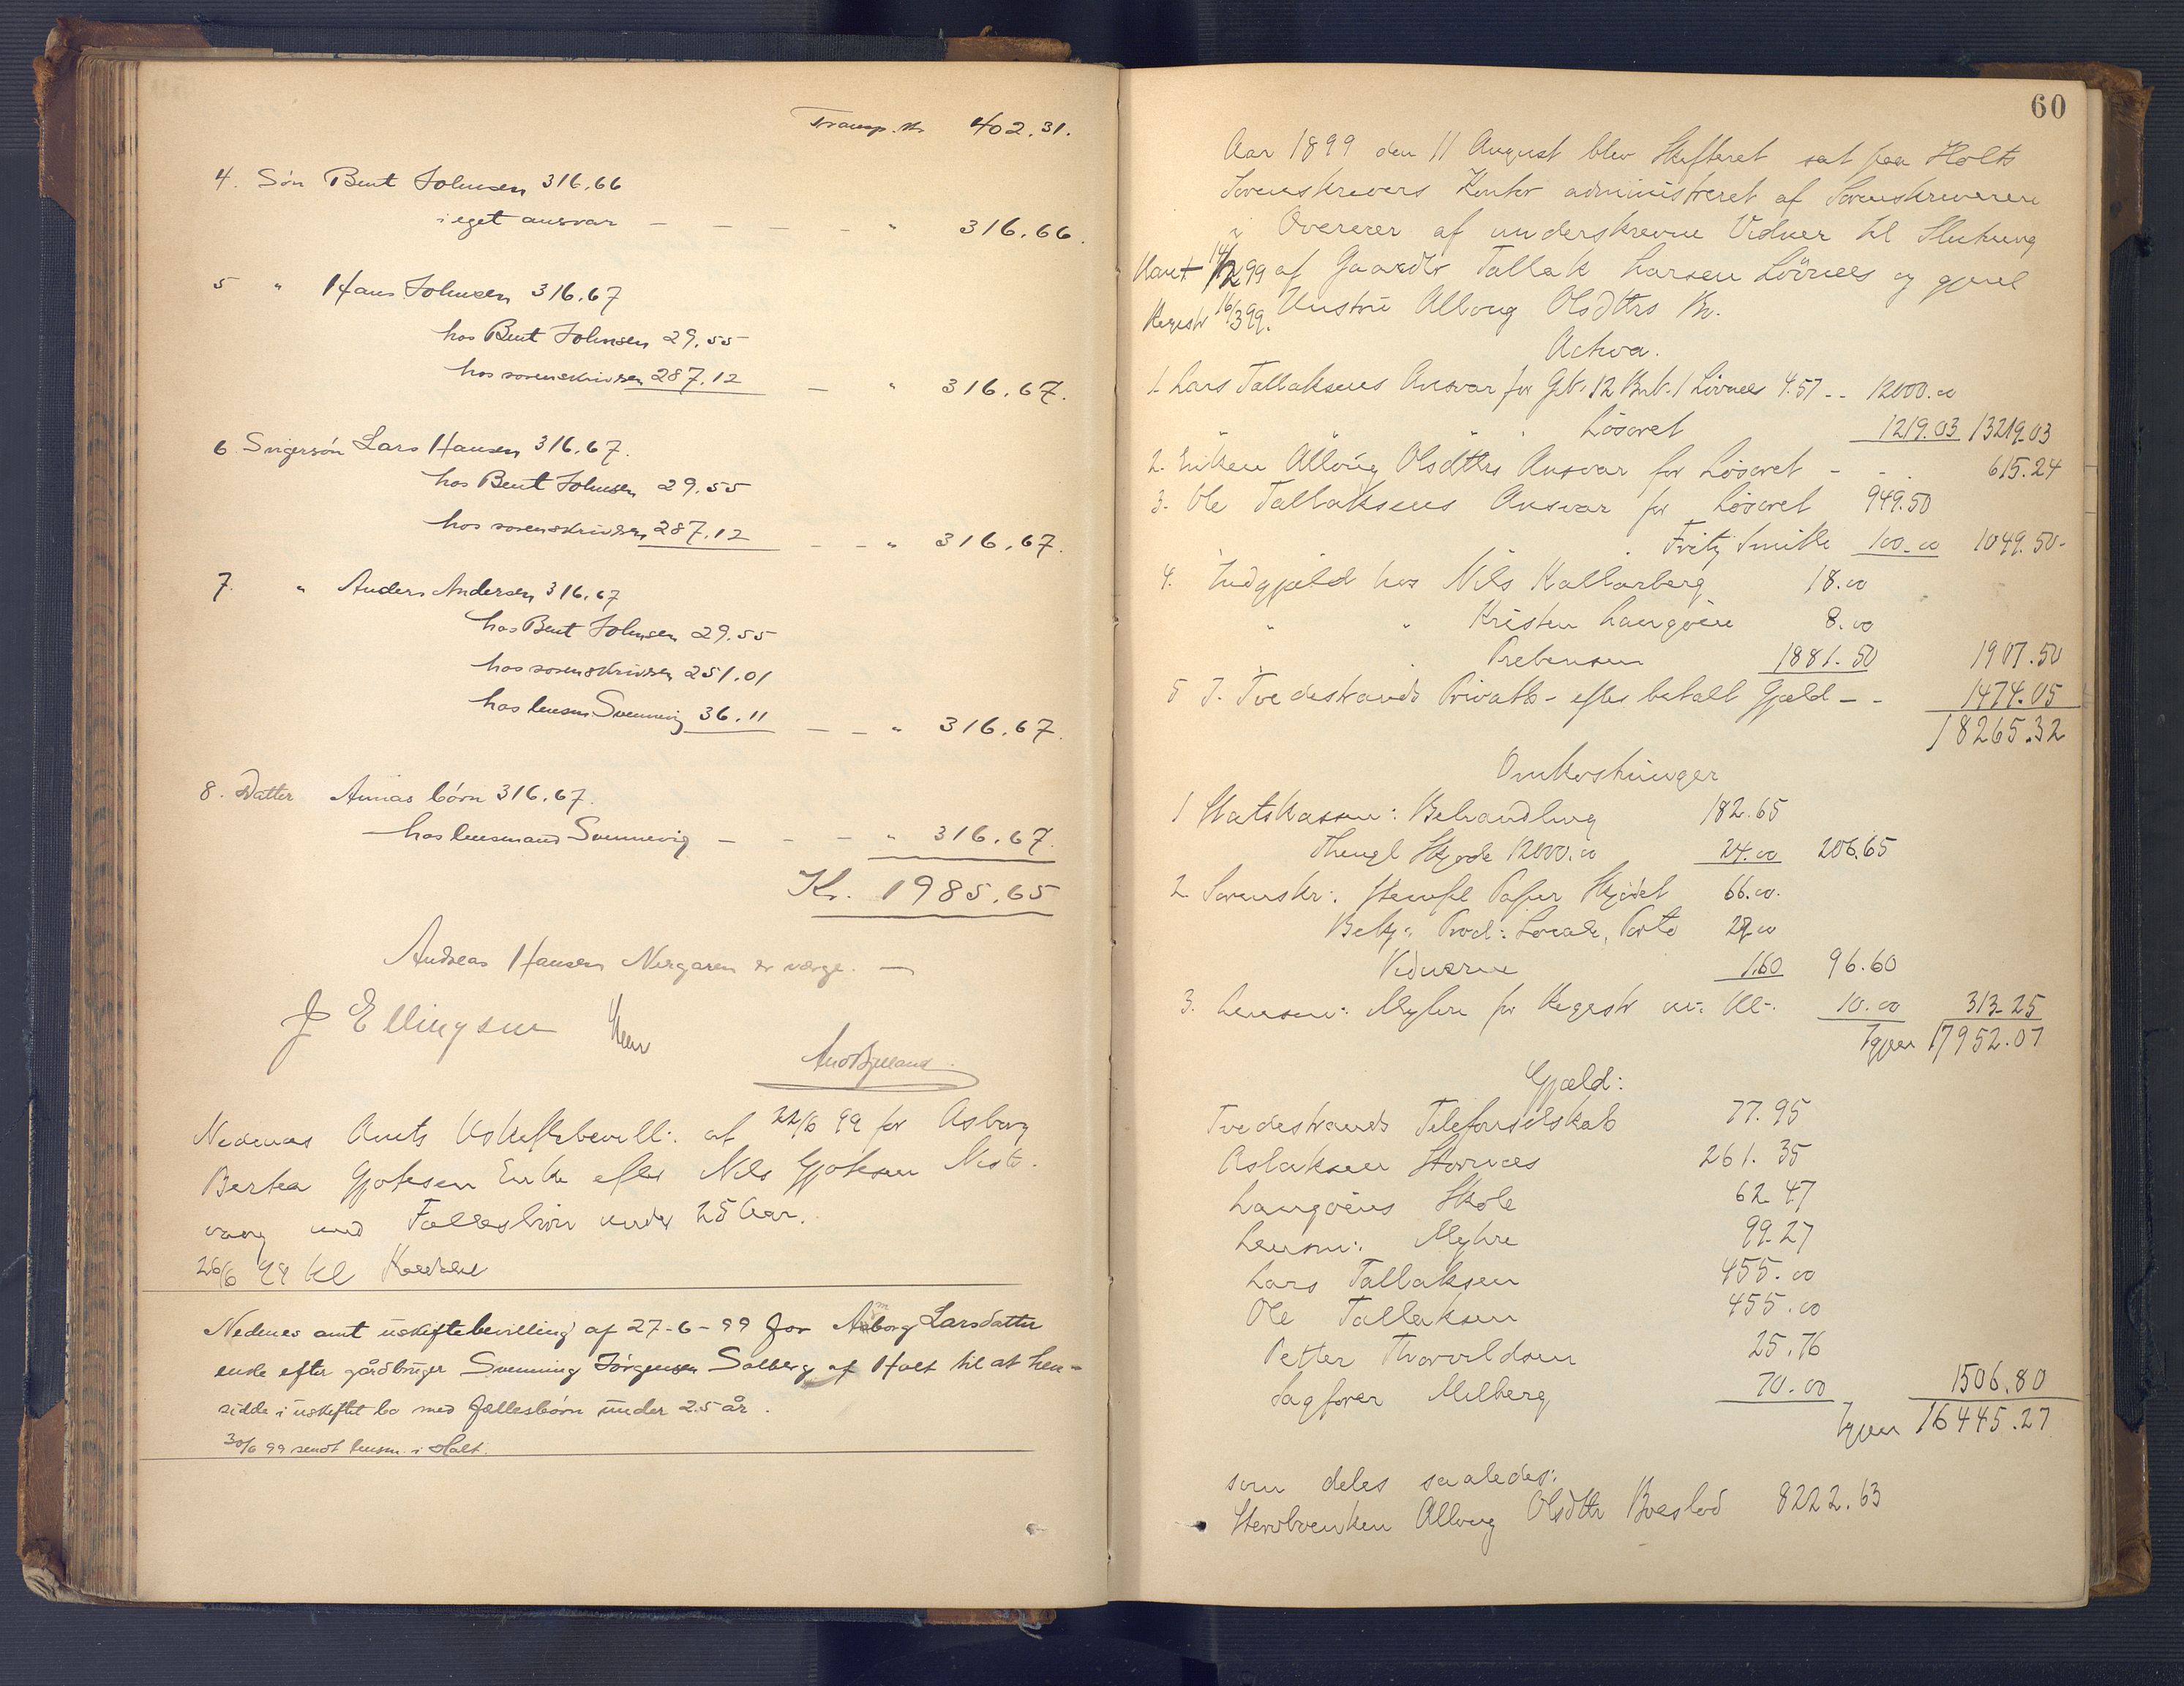 Transp. Kr 402.31.
4. Søn Bent Johnsen 316.66
i eget ansvar — — — — " 316.66.
5 " Hans Johnsen 316.67
hos Bent Johnsen 29.55
hos sorenskriveren 287.12 — " 316.67.
6 Svigersøn Lars Hansen 316.67.
hos Bent Johnsen 29.55
hos sorenskriveren 287.12 — — " 316.67.
7. " Anders Andersen 316.67
hos Bent Johnsen 29.55
hos sorenskriveren 251.01
hos lensm Svennevig 36.11 — — " 316.67.
8. Datter Annas børn 316.67.
hos lensmand Svennevig — — — " 316.67.
Kr. 1985.65
Andreas Hansen Nergaren er værge. —
J Ellingsen
Nedenæs Amts Uskiftebevill: af 22/6 99 for Asborg
Bertea Gjotesen Enke efter Nils Gjotesen
vaag med Fællesbørn under 25 Aar.
26/6 99 til
Nedenes amt uskiftebevilling af 27-6-99 for Asborg Larsdatter
enke efter gårdbruger Svenning Jørgensen Solberg af Holt til at hen-
sidde i uskiftet bo med fællesbørn under 25 år.
30/6 99 sendt lensm. i Holt.
60
Aar 1899 den 11 August blev Skifteret sat paa Holts
Sorenskrivers Kontor administreret af Sorenskriveren
i Overvær af underskrevne Vidner til Slutning
af Gaardbr Tallak Larsen Lövnes og gjenl
Registr 16/3 99. Hustru Allaug Olsdttrs Bo.
Activa.
1. Lars Tallaksens Ansvar for Gb. 12 Bnb. 1 Lövnes 4.57 -- 12000.00
" " " " Løsøret 1219.03 13219.03
2. Enken Allaug Olsdttrs Ansvar for Løsøret - - 615.24
3. Ole Tallaksens Ansvar for Løsøret 949.50
" Fritz Smith 100.00 1049.50-
4. Indgjæld hos Nils Kallarberg 18.00
" " Kristen Langøen 8.00
" Prebensen 1881.50 1907.50
5 I Tvedestrands Privatb- efter betalt Gjæld - - 1474.05
18265.32
Omkostninger
1 Statskassen: Behandling 182.65
Thingl Skjøde 12000.00 24.00 206.65
2. Sorenskr: Stempl Papir Skjødet 66.00.
Bekj: Procl: Locale, Porto 29.00
Vidnerne 1.60 96.60
3. Lensm: Myhre for Registr m: M-. 10.00 313.25
Igjen 17952.07
Gjæld:
Tvedestrands Telefonselskab 77.95
Aslaksen 261.35
Langøens Skole 62.47
Lensm: Myhre 99.27
Lars Tallaksen 455.00
Ole Tallaksen 455.00
Petter Thorvildsen 25.76
Sagfører Milberg 70.00 1506.80
Igjen 16445.27
som deles saaledes:
Stervboenken Allaug Olsdttr Boeslod 8222.63